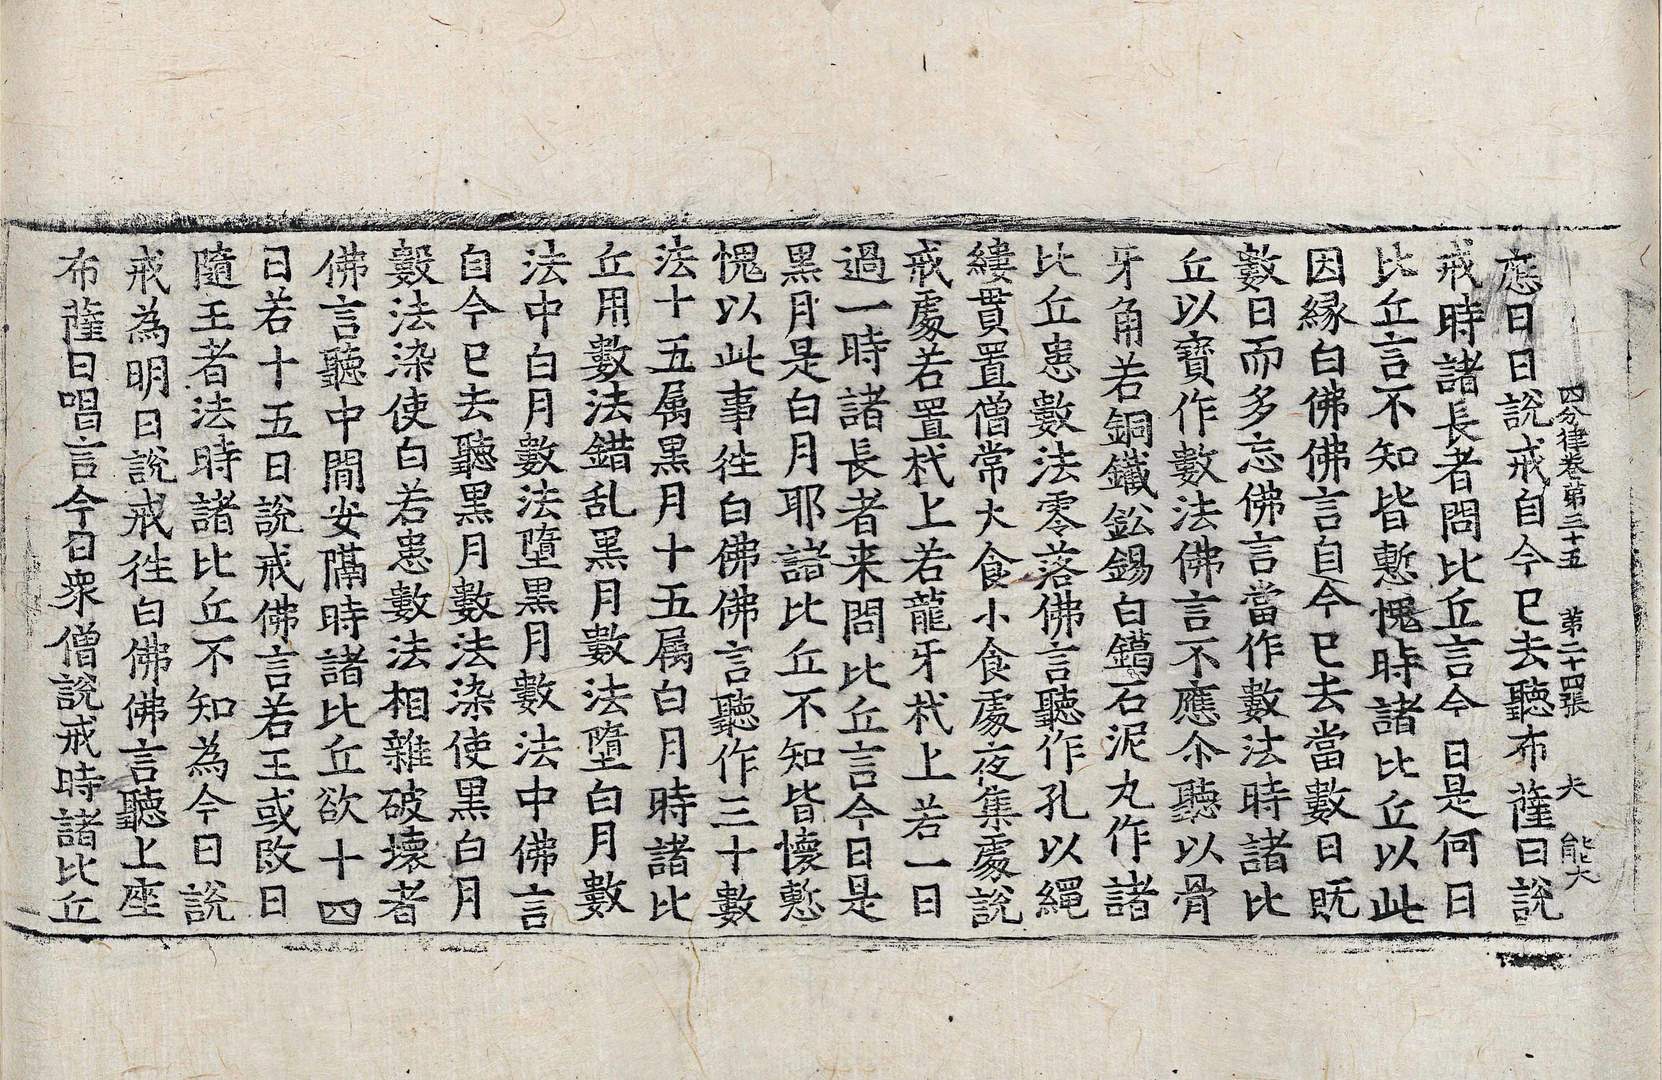 四分律卷第三十五　第二十四張　大　能大
應日日說戒自今已去聽布薩日說
戒時諸長者問比丘言今日是何日
比丘言不知皆慙愧時諸比丘以此
因緣白佛佛言自今已去當數日既
數日而多忘佛言當作數法時諸比
丘以寶作數法佛言不應尒聽以骨
牙角若銅鐵鈆錫白鑞石泥丸作諸
比丘患數法零落佛言聽作孔以繩
縷貫置僧常大食小食處夜集處說
戒處若置杙上若龍牙杙上若一日
過一時諸長者来問比丘言今日是
黑月是白月耶諸比丘不知皆懷慙
愧以此事徃白佛佛言聽作三十數
法十五属黑月十五属白月時諸比
丘用數法錯乱黑月數法墮白月數
法中白月數法墮黑月數法中佛言
自今已去聽黑月數法染使黑白月
數法染使白若患數法相雜破壞者
佛言聽中閒安隔時諸比丘欲十四
日若十五日說戒佛言若王或改日
隨王者法時諸比丘不知為今日說
戒為明日說戒徃白佛佛言聽上座
布薩日唱言今日衆僧說戒時諸比丘